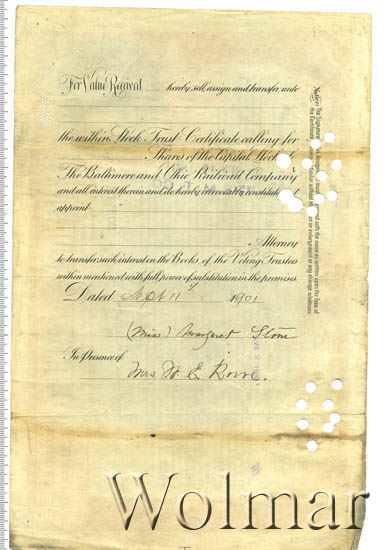 For Value Received hereby sell, assign and transfer unto
the within Stock Trust Certificate calling for
Shares of the Capital Stock of
The Baltimore and Ohio Railroad Company
and all interest therein and do hereby irrevocably constitute and
appoint
Attorney
to transfer such interest on the Books of the Voting Trustees
within mentioned with full power of substitution in the premises.
Dated Sept 11th 1901
(Miss) Margaret Stone
In Presence of
Mrs
Notice: The Signature to this Assignment must
with the name as written upon the face of
the Certificate, in every particular without
or enlargement or any change whatever
Wolmar